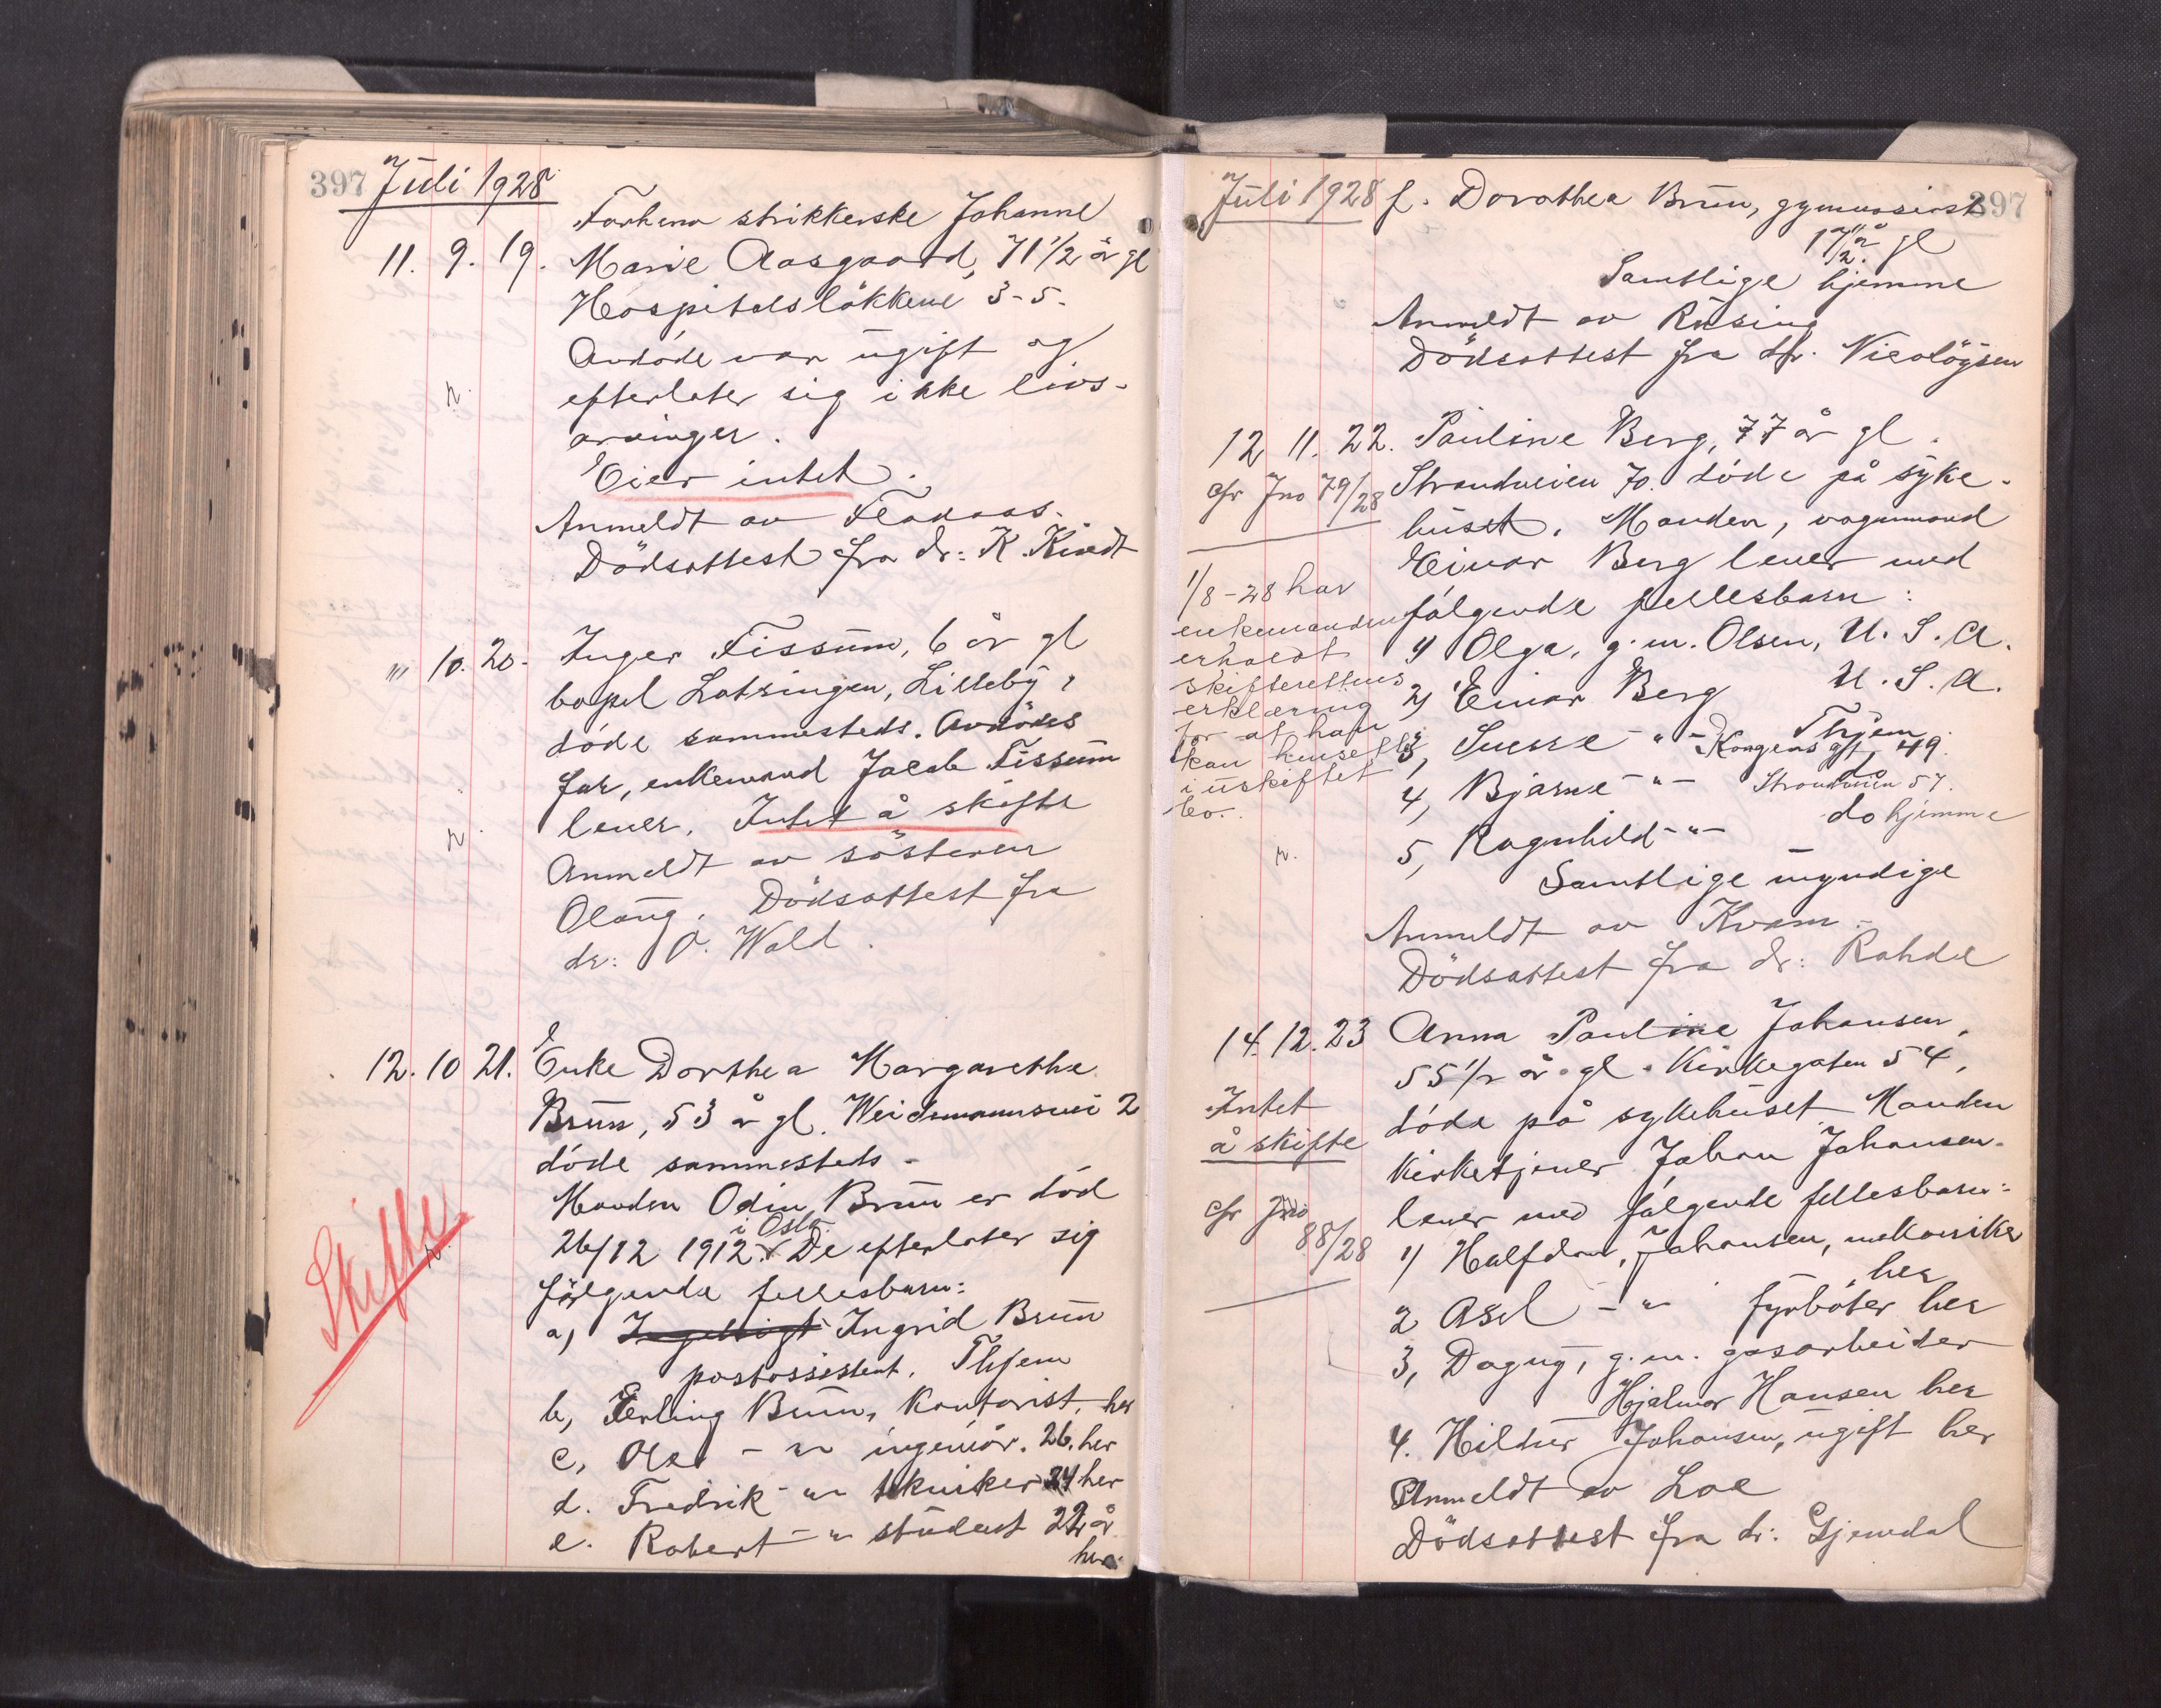 397 Juli 1928
Forhenv strikkerske Johanne
11. 9. 19. Marie Aasgaard, 71 1/2 år gl
Hospitalsløkkene 3-5.
Avdøde var ugift og
efterlater sig ikke livs-
arvinger.
Eier intet.
Anmeldt av Flataas.
Dödsattest fra dr: K. Kindt
"' 10. 20. Inger Tissum, 6 år gl
bopel Ladsingen, Lilleby,
döde sammesteds. Avdödes
far, enkemand Jacob Tissum
lever. Intet å skifte
Anmeldt av sösteren
Olaug. Dödsattest fra
dr: O. Wald.
12. 10 21. Enke Dorthea Margarethe
Brun, 53 år gl. Weidemannsvei 2
döde sammesteds.
Manden Odin Brun er död
i Oslo
26/12 1912. De efterlater sig
fölgende fellesbarn:
a, Ingrid Brun
postassistent, Thjem
b, Erling Brun, Kontorist, her
c, Olaf - " - ingeniör. 26. her
d. Fredrik - " - tekniker 24 her
e. Robert - " - student 22 år
her.
Skifte
Juli 1928 f. Dorothea Brun, gymnasiast 397
17 1/2 år gl
Samtlige hjemme
Anmeldt av Rising
Dödsattest fra dr. Nicolaysen
12 11. 22. Pauline Berg, 77 år gl.
cfr Jno 79/28 Strandveien 70. döde på syke-
huset. Manden, vognmand
Einar Berg lever med
fölgende fellesbarn:
1/8-28 har
enkemanden
erholdt
skifterettens
erklæring
for at han
kan hensitte
i uskiftet
bo.
1) Olga, g.m. Olsen, U.S.A.
2) Einar Berg U.S.A.
3, Sverre - " - Thjem
Kongens gt, 49.
4, Bjarne - " - do
Strandveien 57.
5, Ragnhild - " - do hjemme
Samtlige myndige
Anmeldt av Kvam.
Dödsattest fra dr: Rohde
14. 12. 23 Anna Pauline Johansen,
55 1/2 år gl. Kirkegaten 54,
Intet
å skifte
döde på sykehuset Manden
Kirketjener Johan Johansen.
cfr Jno
88/28
lever med fölgende fellesbarn:
1) Halfdan, Johansen, mekaniker
her
2 Asel - " - fyrböter her
3, Dagny, g.m. gasarbeider
Hjalmar Hansen her
4. Hildur Johansen, ugift her
Anmeldt av Loe
Dödsattest fra dr: Gjendal